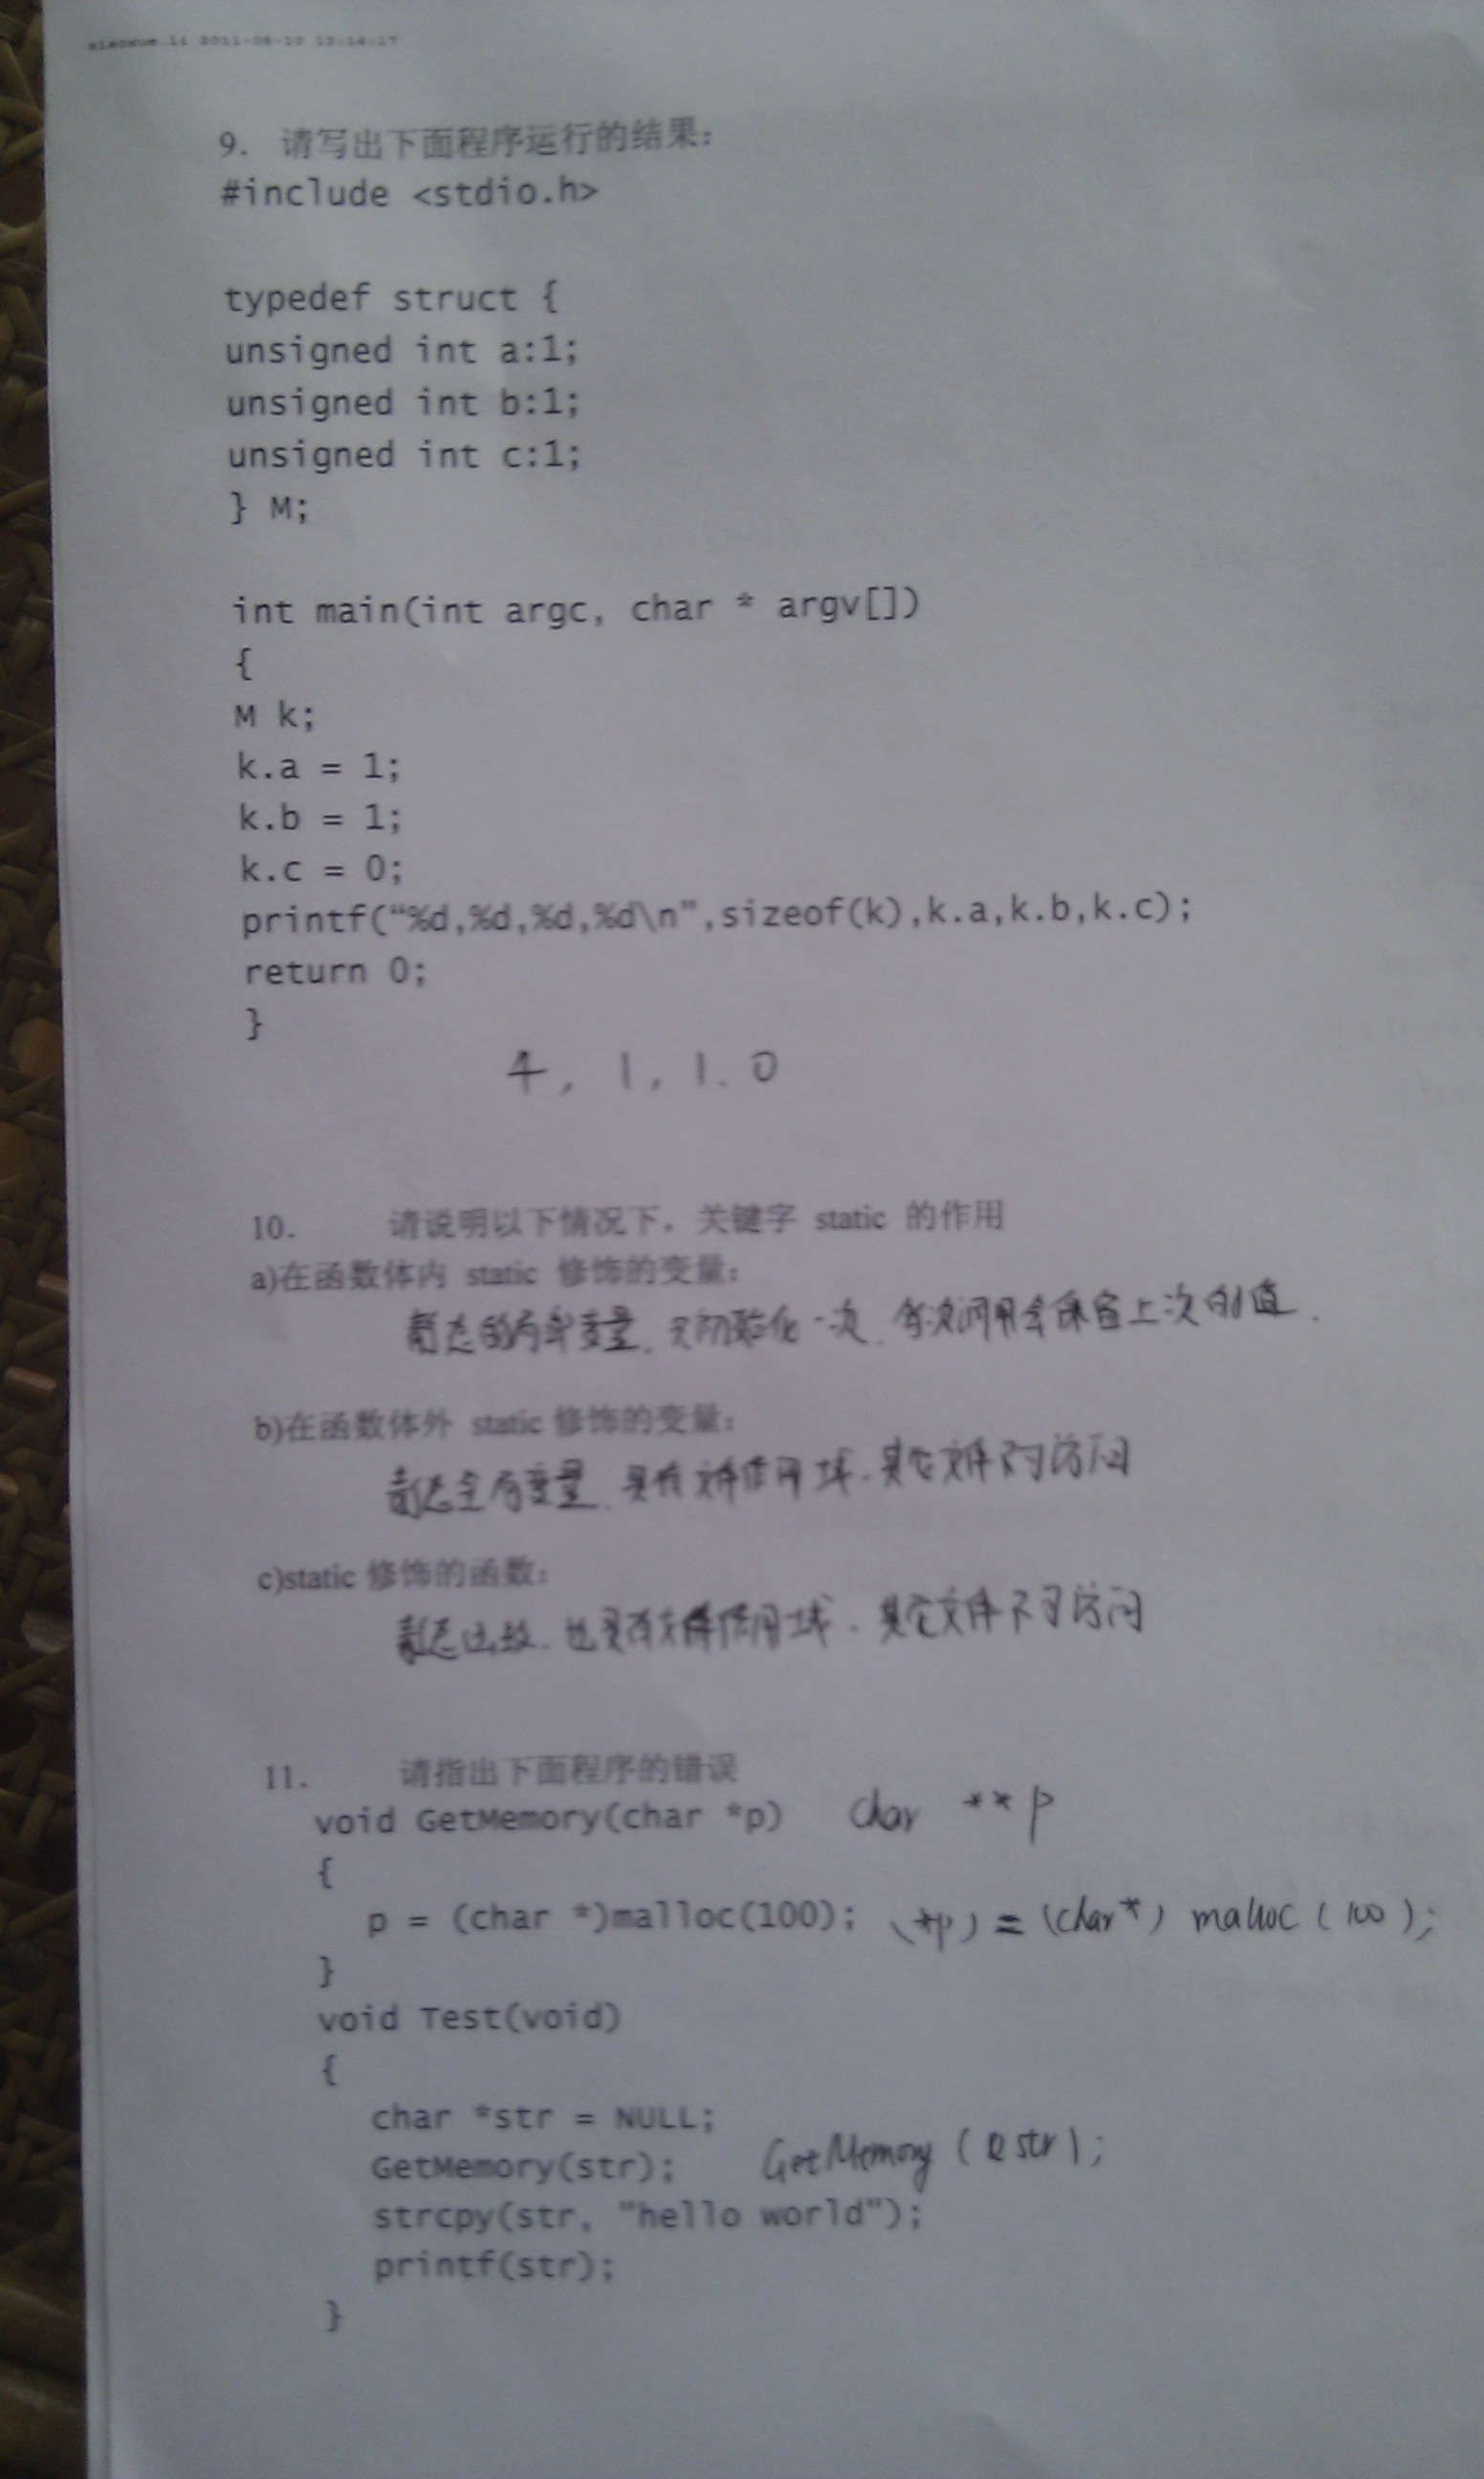 xiaoxue.li 2011-06-10 13:14:17
9. 请写出下面程序运行的结果：
#include <stdio.h>
typedef struct {
unsigned int a:1;
unsigned int b:1;
unsigned int c:1;
} M;
int main(int argc, char * argv[])
{
M k;
k.a = 1;
k.b = 1;
k.c = 0;
printf(“%d,%d,%d,%d\n”,sizeof(k),k.a,k.b,k.c);
return 0;
}
4, 1, 1. 0
10. 请说明以下情况下，关键字 static 的作用
a)在函数体内 static 修饰的变量：
静态的局部变量. 只初始化一次. 每次调用会保留上次的值.
b)在函数体外 static 修饰的变量：
静态全局变量. 具有文件作用域. 其它文件不可访问
c)static 修饰的函数：
静态函数. 也具有文件作用域. 其它文件不可访问
11. 请指出下面程序的错误
void GetMemory(char *p) char **p
{
p = (char *)malloc(100); (*p) = (char*) malloc (100);
}
void Test(void)
{
char *str = NULL;
GetMemory(str); GetMemory (&str);
strcpy(str, "hello world");
printf(str);
}